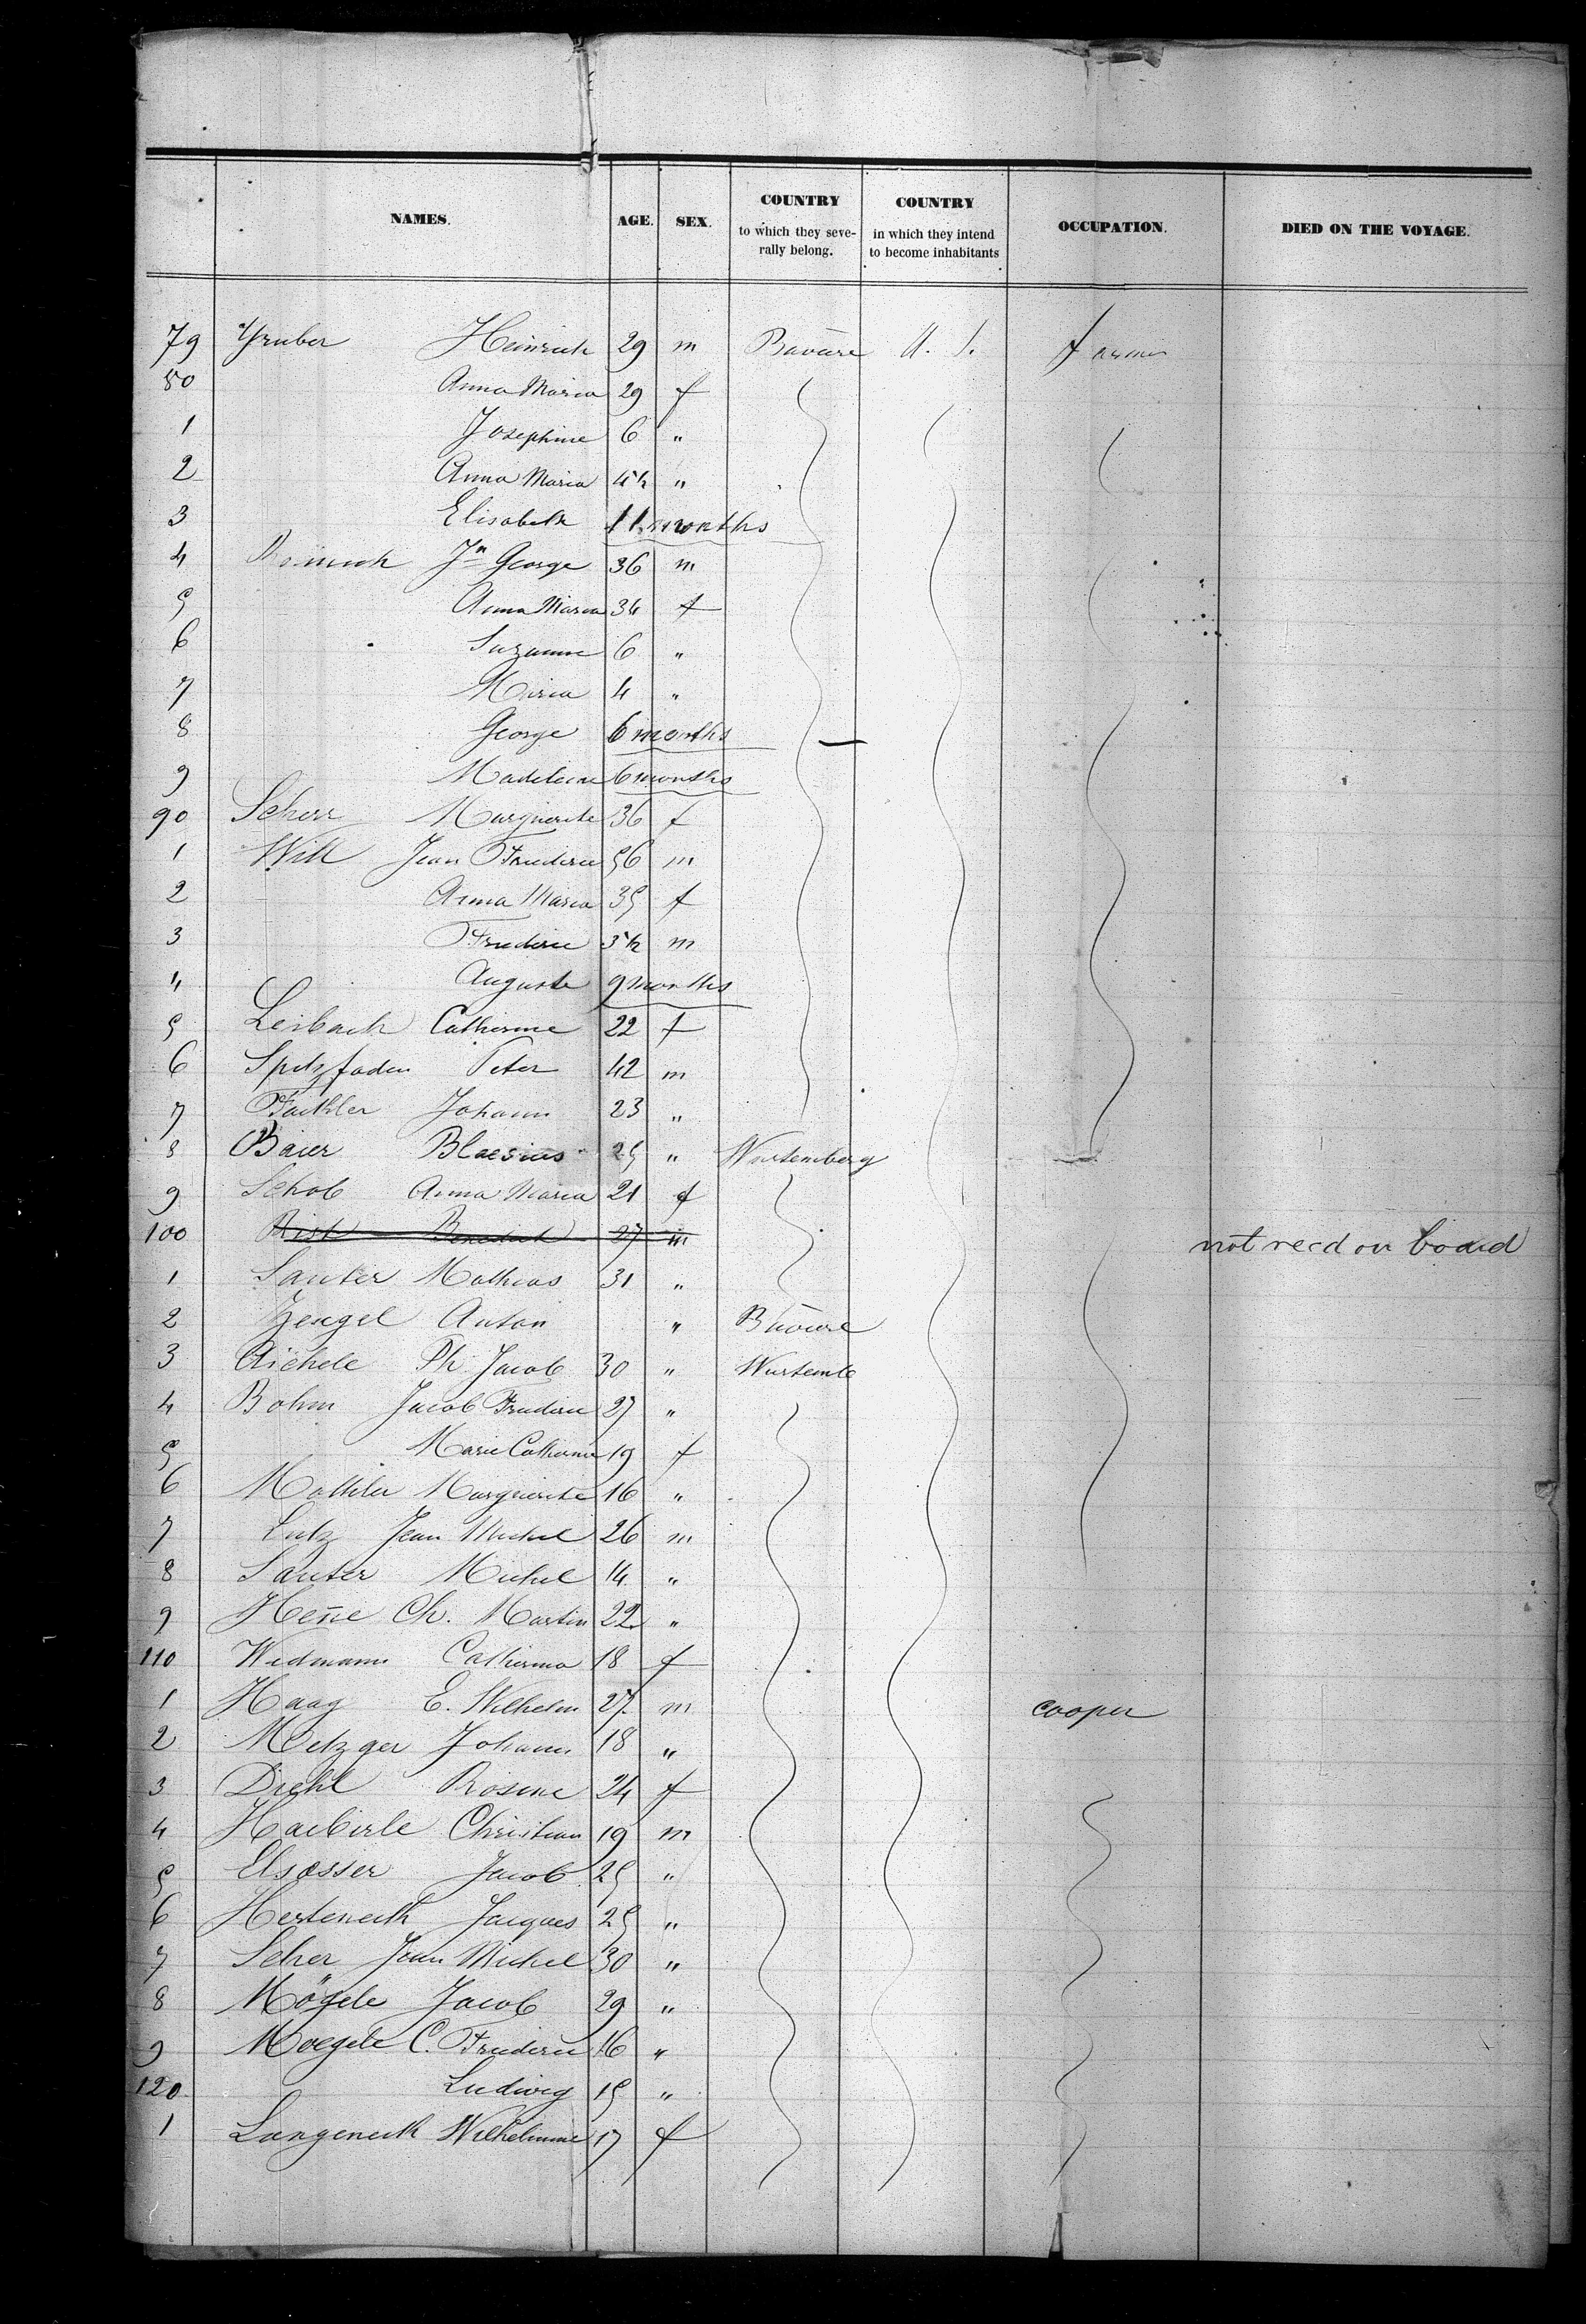 NAMES. AGE. SEX. COUNTRY to which they seve- rally belong. COUNTRY in which they intend to become inhabitants OCCUPATION. DIED ON THE VOYAGE.
79 Gruber Heinrich 29 m Baviere U. S. farmer
80 Anna Maria 29 f
1 Josephine 6 "
2 Anna Maria 4½ "
3 Elisabeth 11 months
4 Jn George 36 m
5 Anna Maria 34 f
6 Suzanne 6 "
7 Maria 4 "
8 George 6 months
9 Madeleine 6 months
90 Scherr Marguerite 36 f
1 Will Jean Frederic 56 m
2 Anna Maria 35 f
3 Frederic 3½ m
4 Auguste 9 months
5 Leibach Catherine 22 f
6 Spitzfaden Peter 42 m
7 Johann 23 "
8 Baier Blaesius 25 " Wurtemberg
9 Schob Anna Maria 21 f
100 Rist Benedict 27 m not recd on board
1 Sauter Mathias 31 "
2 Zengel Anton " Baviere
3 Aichele Ph Jacob 30 " Wurtemb
4 Bohm Jacob Frederic 27 "
5 Marie Catherine 19 f
6 Marguerite 16 "
7 Lutz Jean Michel 26 m
8 Sauter Michel 14 "
9 Heñe Ch. Martin 22 "
110 Widmann Catherina 18 f
1 Haag E. Wilhelm 27 m cooper
2 Metzger Johann 18 "
3 Diehl Rosine 24 f
4 Haeberle Christian 19 m
5 Elsasser Jacob 25 "
6 Jacques 25 "
7 Scher Jean Michel 30 "
8 Mögele Jacob 29 "
9 Moegele C. Frederic 16 "
120 Ludwig 15 "
1 Wilhelmine 17 f